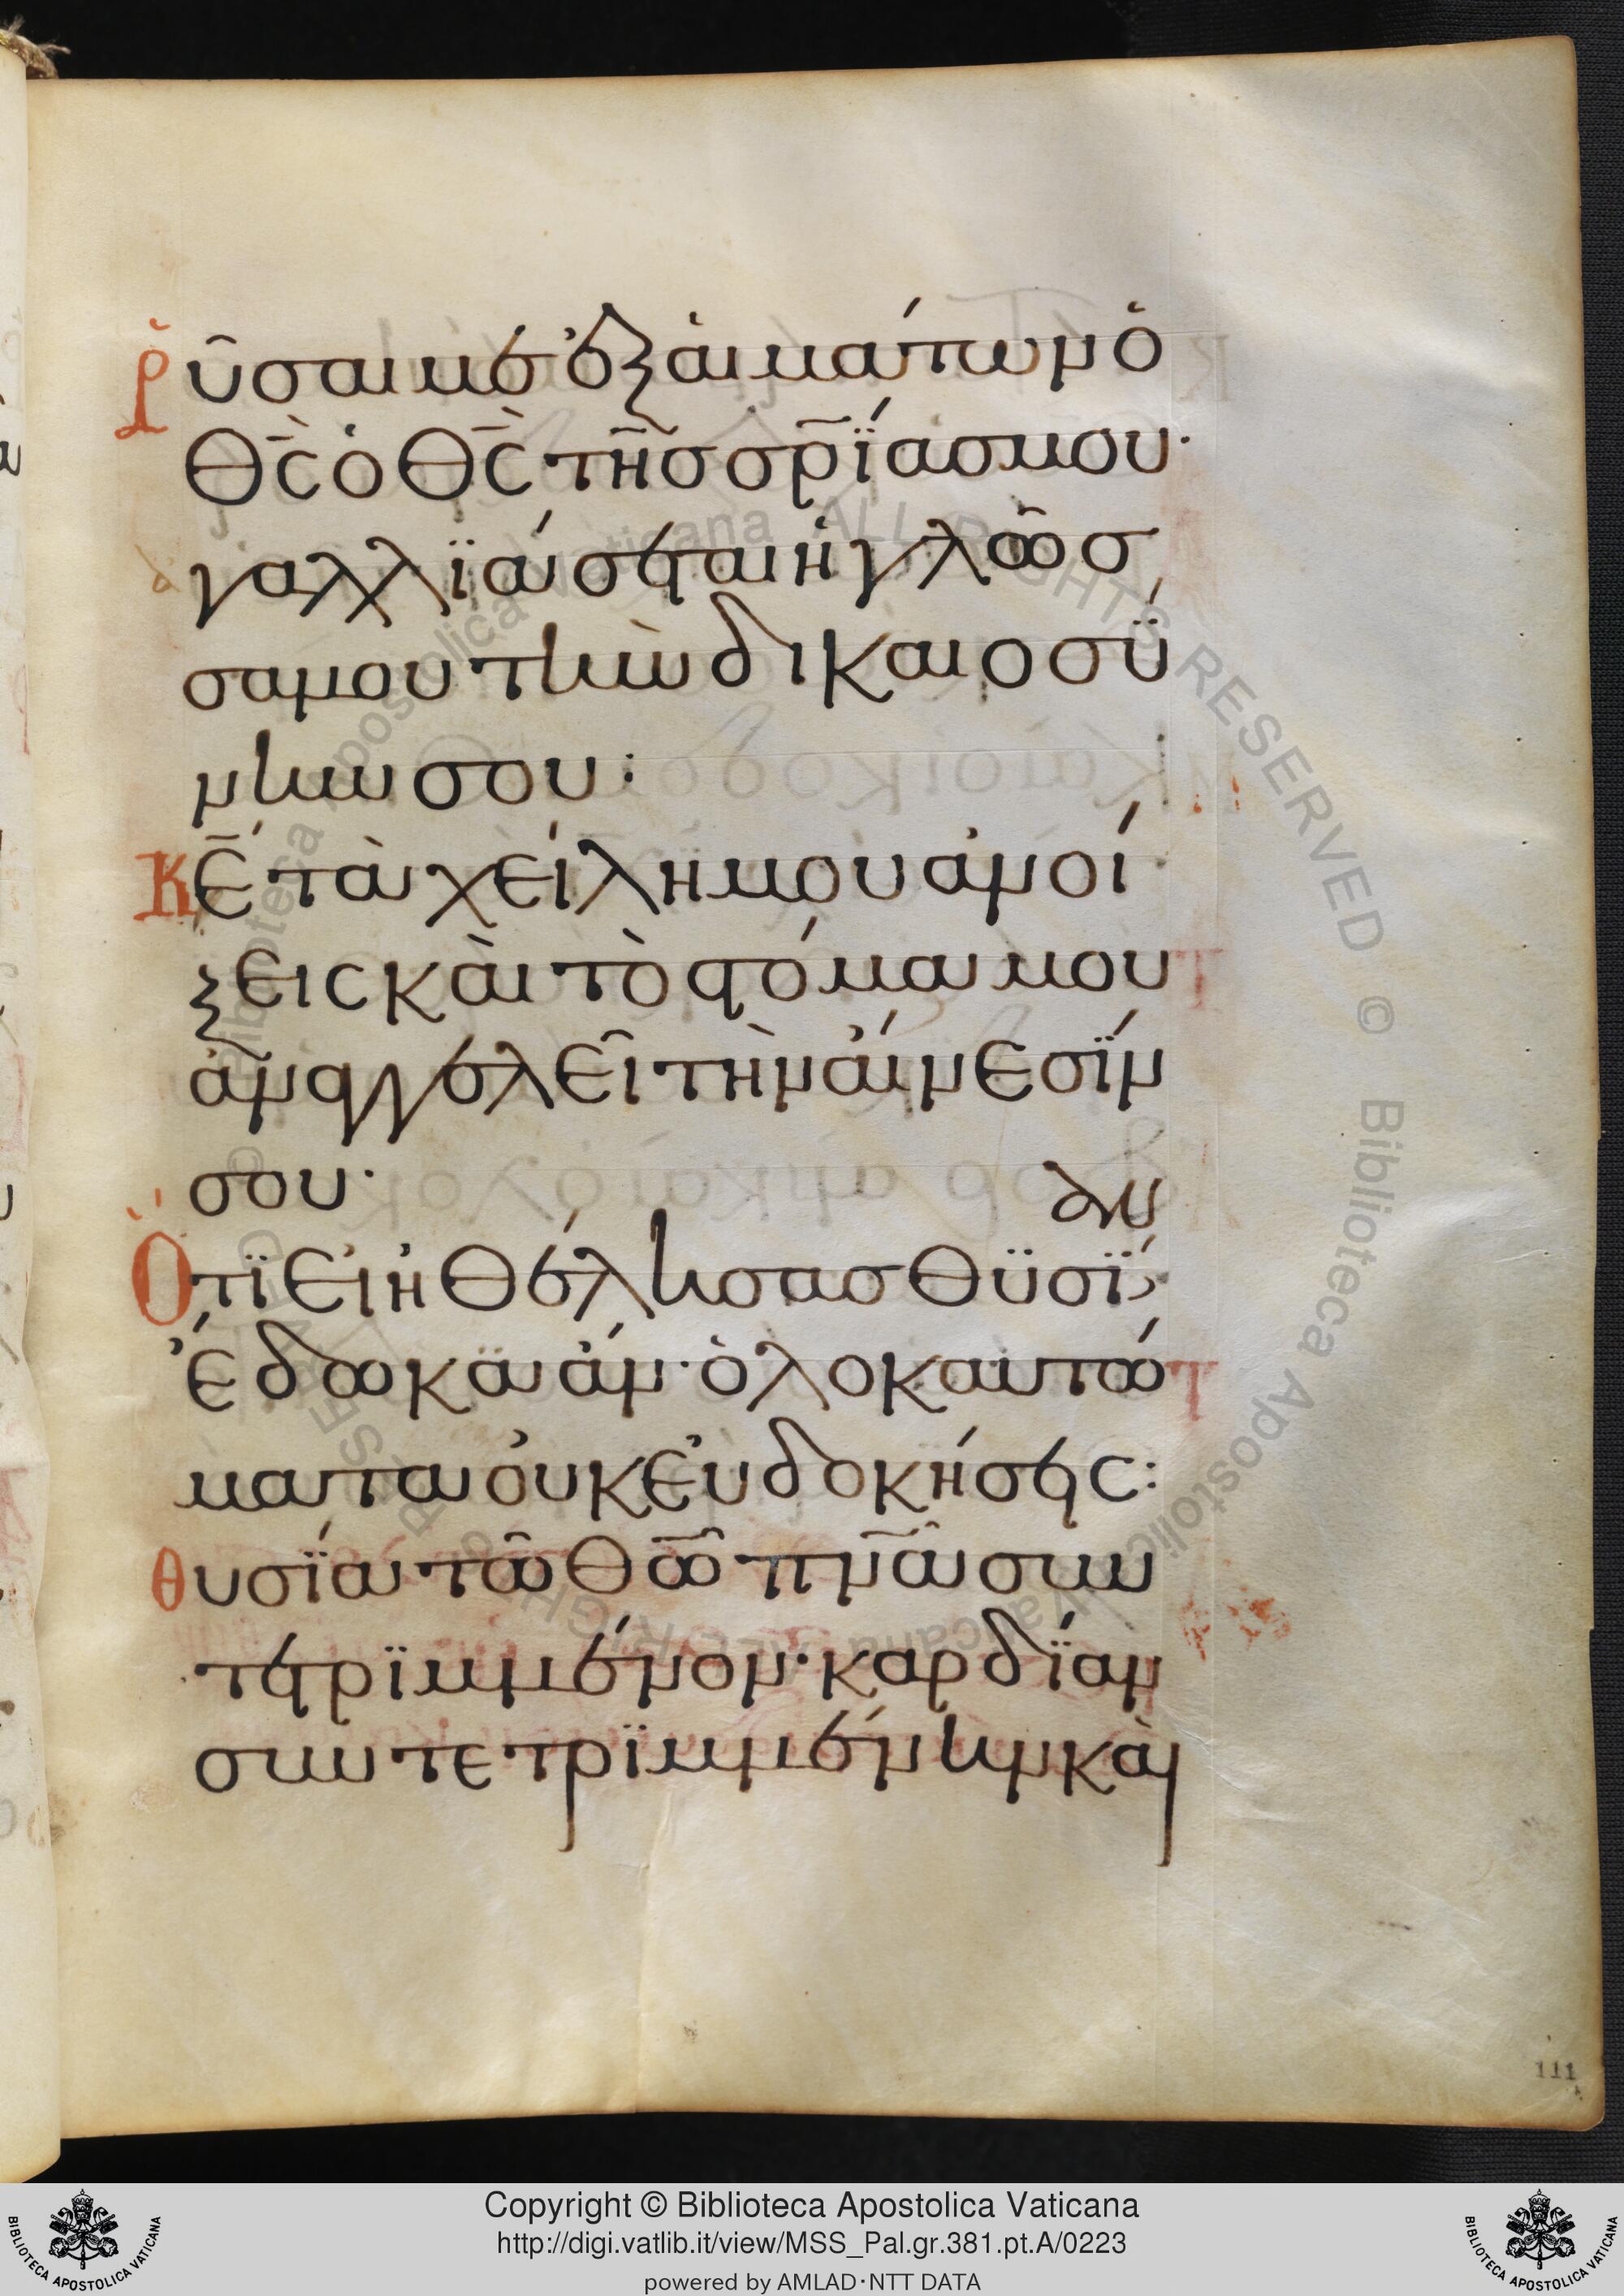 ῥῦσαί με ἐξ αἱμάτων ὁ
Θ̅Σ̅ ὁ Θ̅Σ̅ τῆς σρ̅ίας μου·
ἀγαλλϊάσεται ἡ γλῶσ
σα μου τὴν δικαιοσύ
νην σου:
Κ̅Ε̅ τὰ χείλη μου ἀνοί
ξεις καὶ τὸ στόμα μου
ἀναγγελεῖ τὴν αἴνεσίν
σου·
Ὅτϊ εἰ ἠθέλησας θϋσΐαν
ἔδωκα ἄν· ὁλοκαυτώ
ματα οὐκ εὐδοκήσεις:
θυσΐα τῶ Θ̅ω̅ πν̅α συν
τετρϊμμένον· καρδΐαν
συντετρϊμμένην καὶ
111
Copyright © Biblioteca Apostolica Vaticana
http://digi.vatlib.it/view/MSS_Pal.gr.381.pt.A/0223
powered by AMLAD·NTT DATA
BIBLIOTECA APOSTOLICA VATICANA
BIBLIOTECA APOSTOLICA VATICANA
© Biblioteca Apostolica Vaticana ALL RIGHTS RESERVED © Biblioteca Apostolica Vaticana ALL RIGHTS RESERVED